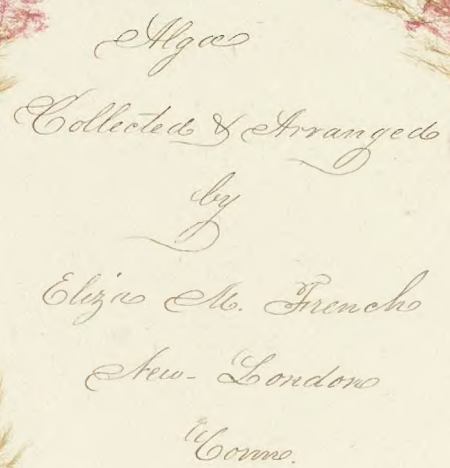 Algæ
Collected & Arranged
by
Eliza M. French
New-London
Conn.